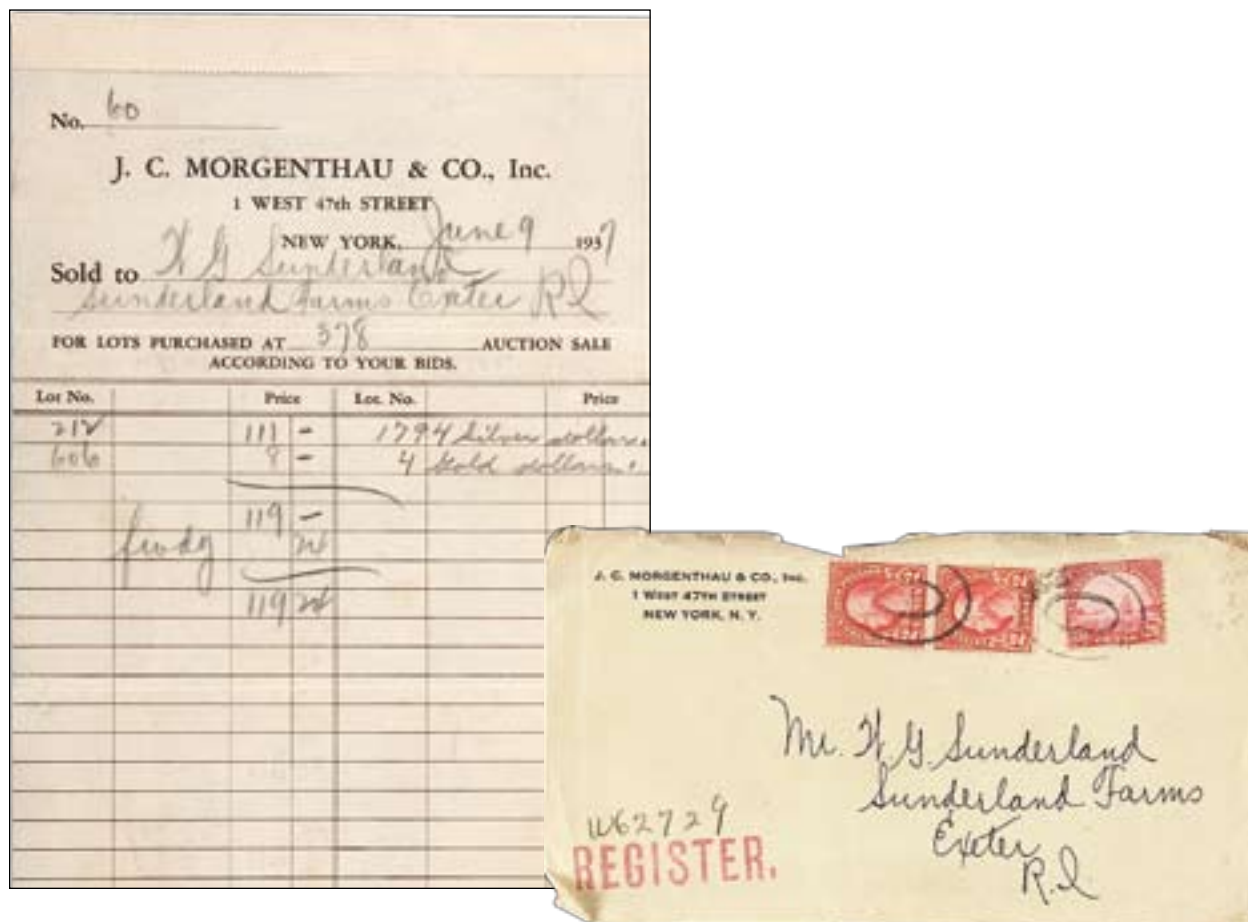 No. 60
J. C. MORGENTHAU & CO., Inc.
1 WEST 47th STREET
NEW YORK, June 9 1937
Sold to H G Sunderland
Sunderland Farms Exeter R I
FOR LOTS PURCHASED AT 378 AUCTION SALE
ACCORDING TO YOUR BIDS.
Lot No. Price Lot. No. Price
212 111 - 1794 Silver dollars.
606 8 - 4 Gold dollars.
119 -
fwdg
119
J. C. MORGENTHAU & CO., Inc.
1 WEST 47TH STREET
NEW YORK, N. Y.
Mr. H G. Sunderland
Sunderland Farms
Exeter
R.I
1162729
REGISTER.